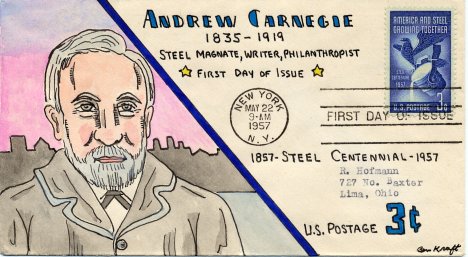 ANDREW CARNEGIE
1835-1919
STEEL MAGNATE, WRITER, PHILANTHROPIST
FIRST DAY OF ISSUE
AMERICA AND STEEL
GROWING TOGETHER
STEEL
CENTENNIAL
1957
U.S. POSTAGE 3¢
NEW YORK
MAY 22
9-AM
1957
N.Y.
FIRST DAY OF ISSUE
1857-STEEL CENTENNIAL-1957
R. Hofmann
727 No. Baxter
Lima, Ohio
U.S. POSTAGE 3¢
Ben Kraft